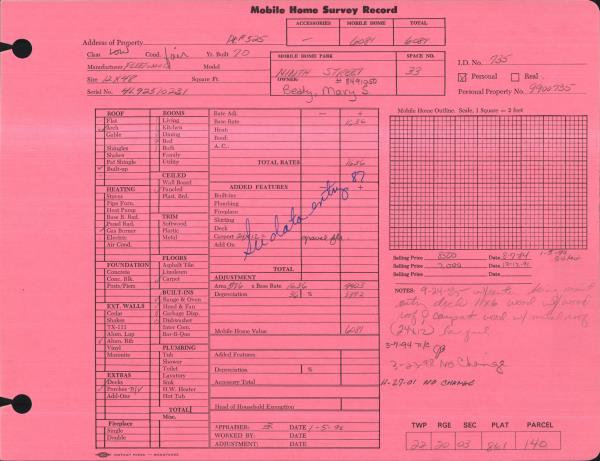 Mobile Home Survey Record
ACCESSORIES MOBILE HOME TOTAL
— 6081 6081
Address of Property
Class Low Cond. fair Yr. Built 70
Manufacturer Model
Size 12X48 Square Ft.
Serial No.
MOBILE HOME PARK SPACE NO.
NINTH STREET 33
OWNER:
Mary S
I.D. No. 735
Personal Real
Personal Property No. 9900735
ROOF
Flat
Arch
Gable
Shingles
Shakes
Pat Shingle
Built-up
HEATING
Stoves
Pipe Furn.
Heat Pump
Base B. Rad.
Panel Rad.
Gas Burner
Electric
Air Cond.
FOUNDATION
Concrete
Conc. Blk.
Posts/Piers
EXT. WALLS
Cedar
Shakes
TX-111
Alum. Lap
Alum. Rib
Vinyl
Masonite
EXTRAS
Decks
Porches
Add-Ons
Fireplace
Single
Double
ROOMS
Living
Kitchen
Dining
Bed
Bath
Family
Utility
CEILED
Wall Board
Paneled
Plast. Brd.
TRIM
Softwood
Plastic
Metal
FLOORS
Asphalt Tile
Linoleum
Carpet
BUILT-INS
Range & Oven
Hood & Fan
Garbage Disp.
Dishwasher
Inter Com.
Bar-B-Que
PLUMBING
Tub
Shower
Toilet
Lavatory
Sink
H.W. Heater
Hot Tub
TOTAL
Misc.
Rate Adj. — +
Base Rate
Heat:
Roof:
A. C.:
TOTAL RATES
ADDED FEATURES — +
Built-ins
Plumbing
Fireplace
Skirting
Deck
Carport 24x12
Add On
See data entry 87
TOTAL
ADJUSTMENT
Area 576 x Base Rate
Depreciation %
Mobile Home Value 6081
Added Features
Depreciation %
Accessory Total
Head of Household Exemption
APPRAISER: DATE 1-5-
WORKED BY: DATE
ADJUSTED: DATE
Mobile Home Outline. Scale, 1 Square = 2 feet
Selling Price 8500 Date 8-7-84
Selling Price Date
Selling Price Date
NOTES: 9-24-
deck wood
carport wood w/ metal roof
(24x12)
3-7-94 N/C
3-23-98 No Change
11-27-01 NO CHANGE
TWP RGE SEC PLAT PARCEL
22 20 03 861 140